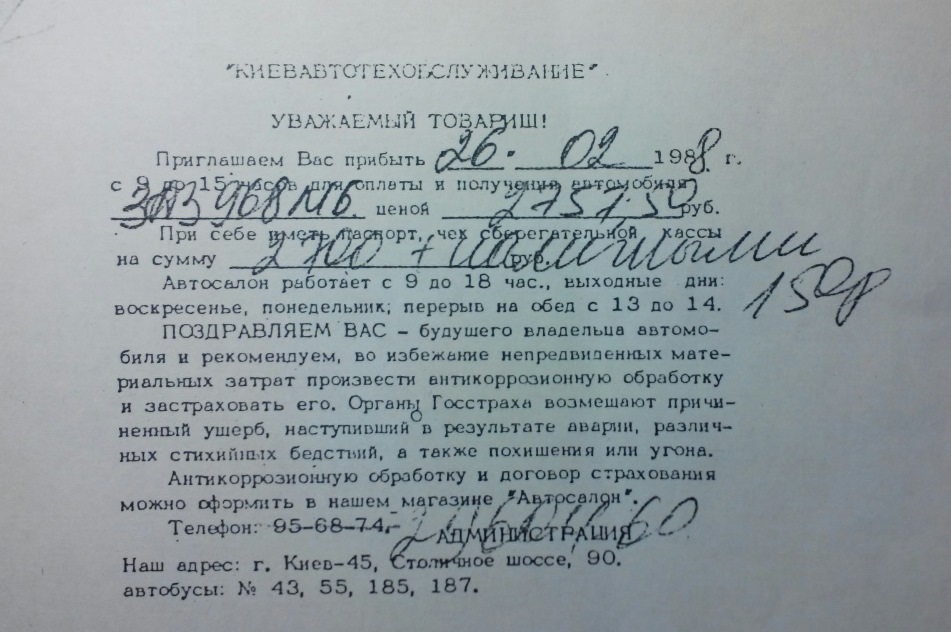 "КИЕВАВТОТЕХОБСЛУЖИВАНИЕ"
УВАЖАЕМЫЙ ТОВАРИЩ!
Приглашаем Вас прибыть 26. 02 1988 г.
с 9 до 15 часов для оплаты и получения автомобиля
ЗАЗ 968МБ ценой 2757,50 руб.
При себе иметь паспорт, чек сберегательной кассы
на сумму 2700 + наличными руб.
150р
Автосалон работает с 9 до 18 час., выходные дни:
воскресенье, понедельник; перерыв на обед с 13 до 14.
ПОЗДРАВЛЯЕМ ВАС - будущего владельца автомо-
биля и рекомендуем, во избежание непредвиденных мате-
риальных затрат произвести антикоррозионную обработку
и застраховать его. Органы Госстраха возмещают причи-
ненный ущерб, наступивший в результате аварии, различ-
ных стихийных бедствий, а также похищения или угона.
Антикоррозионную обработку и договор страхования
можно оформить в нашем магазине "Автосалон".
Телефон: 95-68-74.
АДМИНИСТРАЦИЯ
Наш адрес: г. Киев-45, Столичное шоссе, 90.
автобусы: № 43, 55, 185, 187.